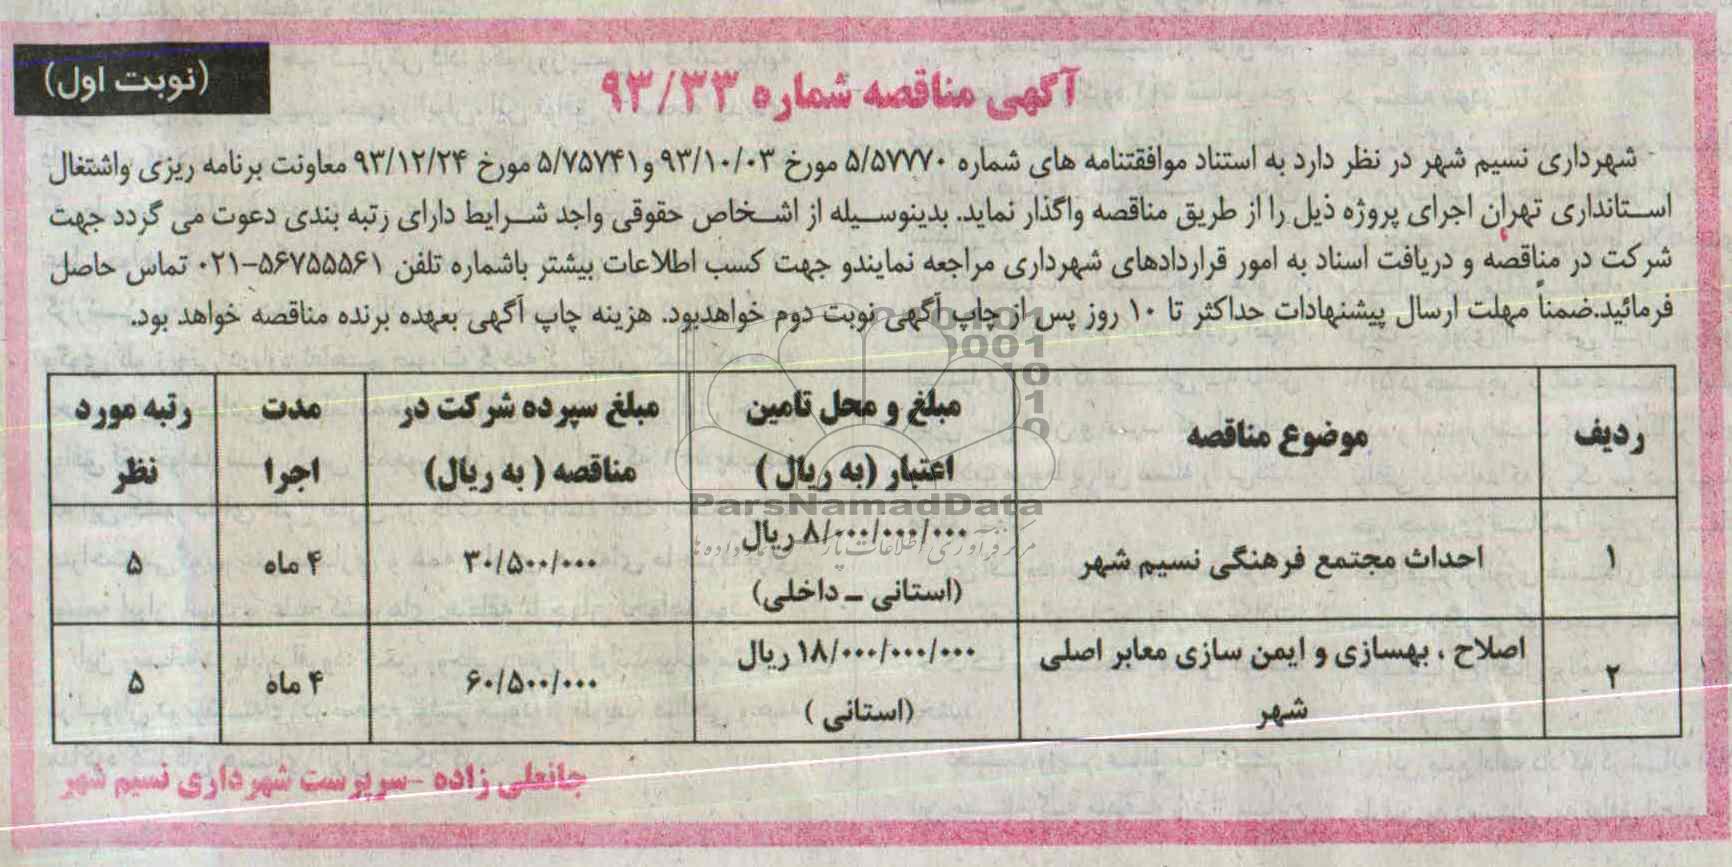 (نوبت اول)
آگهی مناقصه شماره ۹۳/۳۳
شهرداری نسیم شهر در نظر دارد به استناد موافقتنامه های شماره ۵/۵۷۷۷۰ مورخ ۹۳/۱۰/۰۳ و۵/۷۵۷۴۱ مورخ ۹۳/۱۲/۲۴ معاونت برنامه ریزی واشتغال
استانداری تهران اجرای پروژه ذیل را از طریق مناقصه واگذار نماید. بدینوسیله از اشخاص حقوقی واجد شرایط دارای رتبه بندی دعوت می گردد جهت
شرکت در مناقصه و دریافت اسناد به امور قراردادهای شهرداری مراجعه نمایندو جهت کسب اطلاعات بیشتر باشماره تلفن ۵۶۷۵۵۵۶۱-۰۲۱ تماس حاصل
فرمائید.ضمناً مهلت ارسال پیشنهادات حداکثر تا ۱۰ روز پس از چاپ آگهی نوبت دوم خواهدبود. هزینه چاپ آگهی بعهده برنده مناقصه خواهد بود.
ردیف	موضوع مناقصه	مبلغ و محل تامین اعتبار (به ریال )	مبلغ سپرده شرکت در مناقصه ( به ریال)	مدت اجرا	رتبه مورد نظر
۱	احداث مجتمع فرهنگی نسیم شهر	۸/۰۰۰/۰۰۰/۰۰۰ ریال (استانی ـ داخلی)	۳۰/۵۰۰/۰۰۰	۴ ماه	۵
۲	اصلاح ، بهسازی و ایمن سازی معابر اصلی شهر	۱۸/۰۰۰/۰۰۰/۰۰۰ ریال (استانی )	۶۰/۵۰۰/۰۰۰	۴ ماه	۵
جانعلی زاده -سرپرست شهرداری نسیم شهر
ParsNamadData